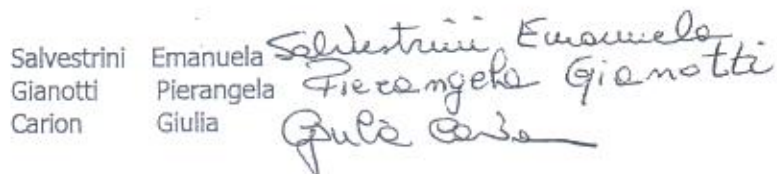 Salvestrini Emanuela Salvestrini Emanuela
Gianotti Pierangela Pierangela Gianotti
Carion Giulia Giulia Carion